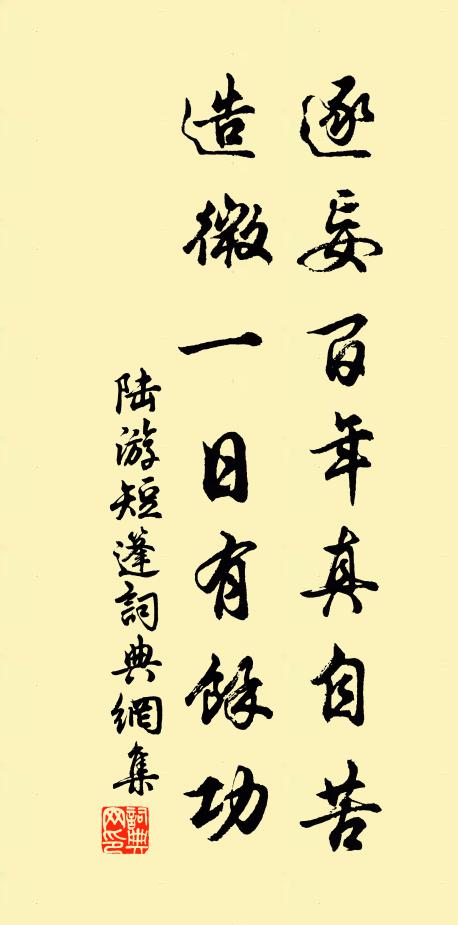 逐妄百年真自苦
造微一日有餘功
陆游短蓬詞典網集
詞典网印